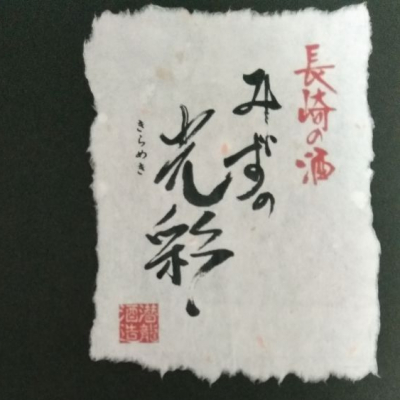 長崎の酒
みずの
光彩
きらめき
潜龍
酒造